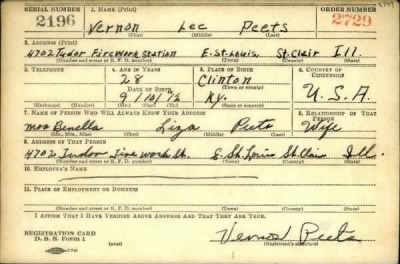 SERIAL NUMBER 1. NAME (Print) ORDER NUMBER
2196 Vernon Lee Peets 2729
(First) (Middle) (Last)
2. ADDRESS (Print)
4702 Tudor Firework Station E. St. Louis, St. Clair Ill.
(Number and street or R. F. D. number) (Town) (County) (State)
3. TELEPHONE 4. AGE IN YEARS 5. PLACE OF BIRTH 6. COUNTRY OF CITIZENSHIP
28 Clinton
(Town or county)
DATE OF BIRTH
9/10/12 Ky. U.S.A
(Exchange) (Number) (Mo.) (Day) (Yr.) (State or country)
7. NAME OF PERSON WHO WILL ALWAYS KNOW YOUR ADDRESS 8. RELATIONSHIP OF THAT PERSON
Liza Peets Wife
(Mr., Mrs., Miss) (First) (Middle) (Last)
9. ADDRESS OF THAT PERSON
4702 Tudor Fire Work St. E. St. Louis St. Clair Ill.
(Number and street or R. F. D. number) (Town) (County) (State)
10. EMPLOYER'S NAME
11. PLACE OF EMPLOYMENT OR BUSINESS
(Number and street or R. F. D. number) (Town) (County) (State)
I AFFIRM THAT I HAVE VERIFIED ABOVE ANSWERS AND THAT THEY ARE TRUE.
REGISTRATION CARD
D. S. S. Form 1 Vernon Peets
(Registrant's signature)